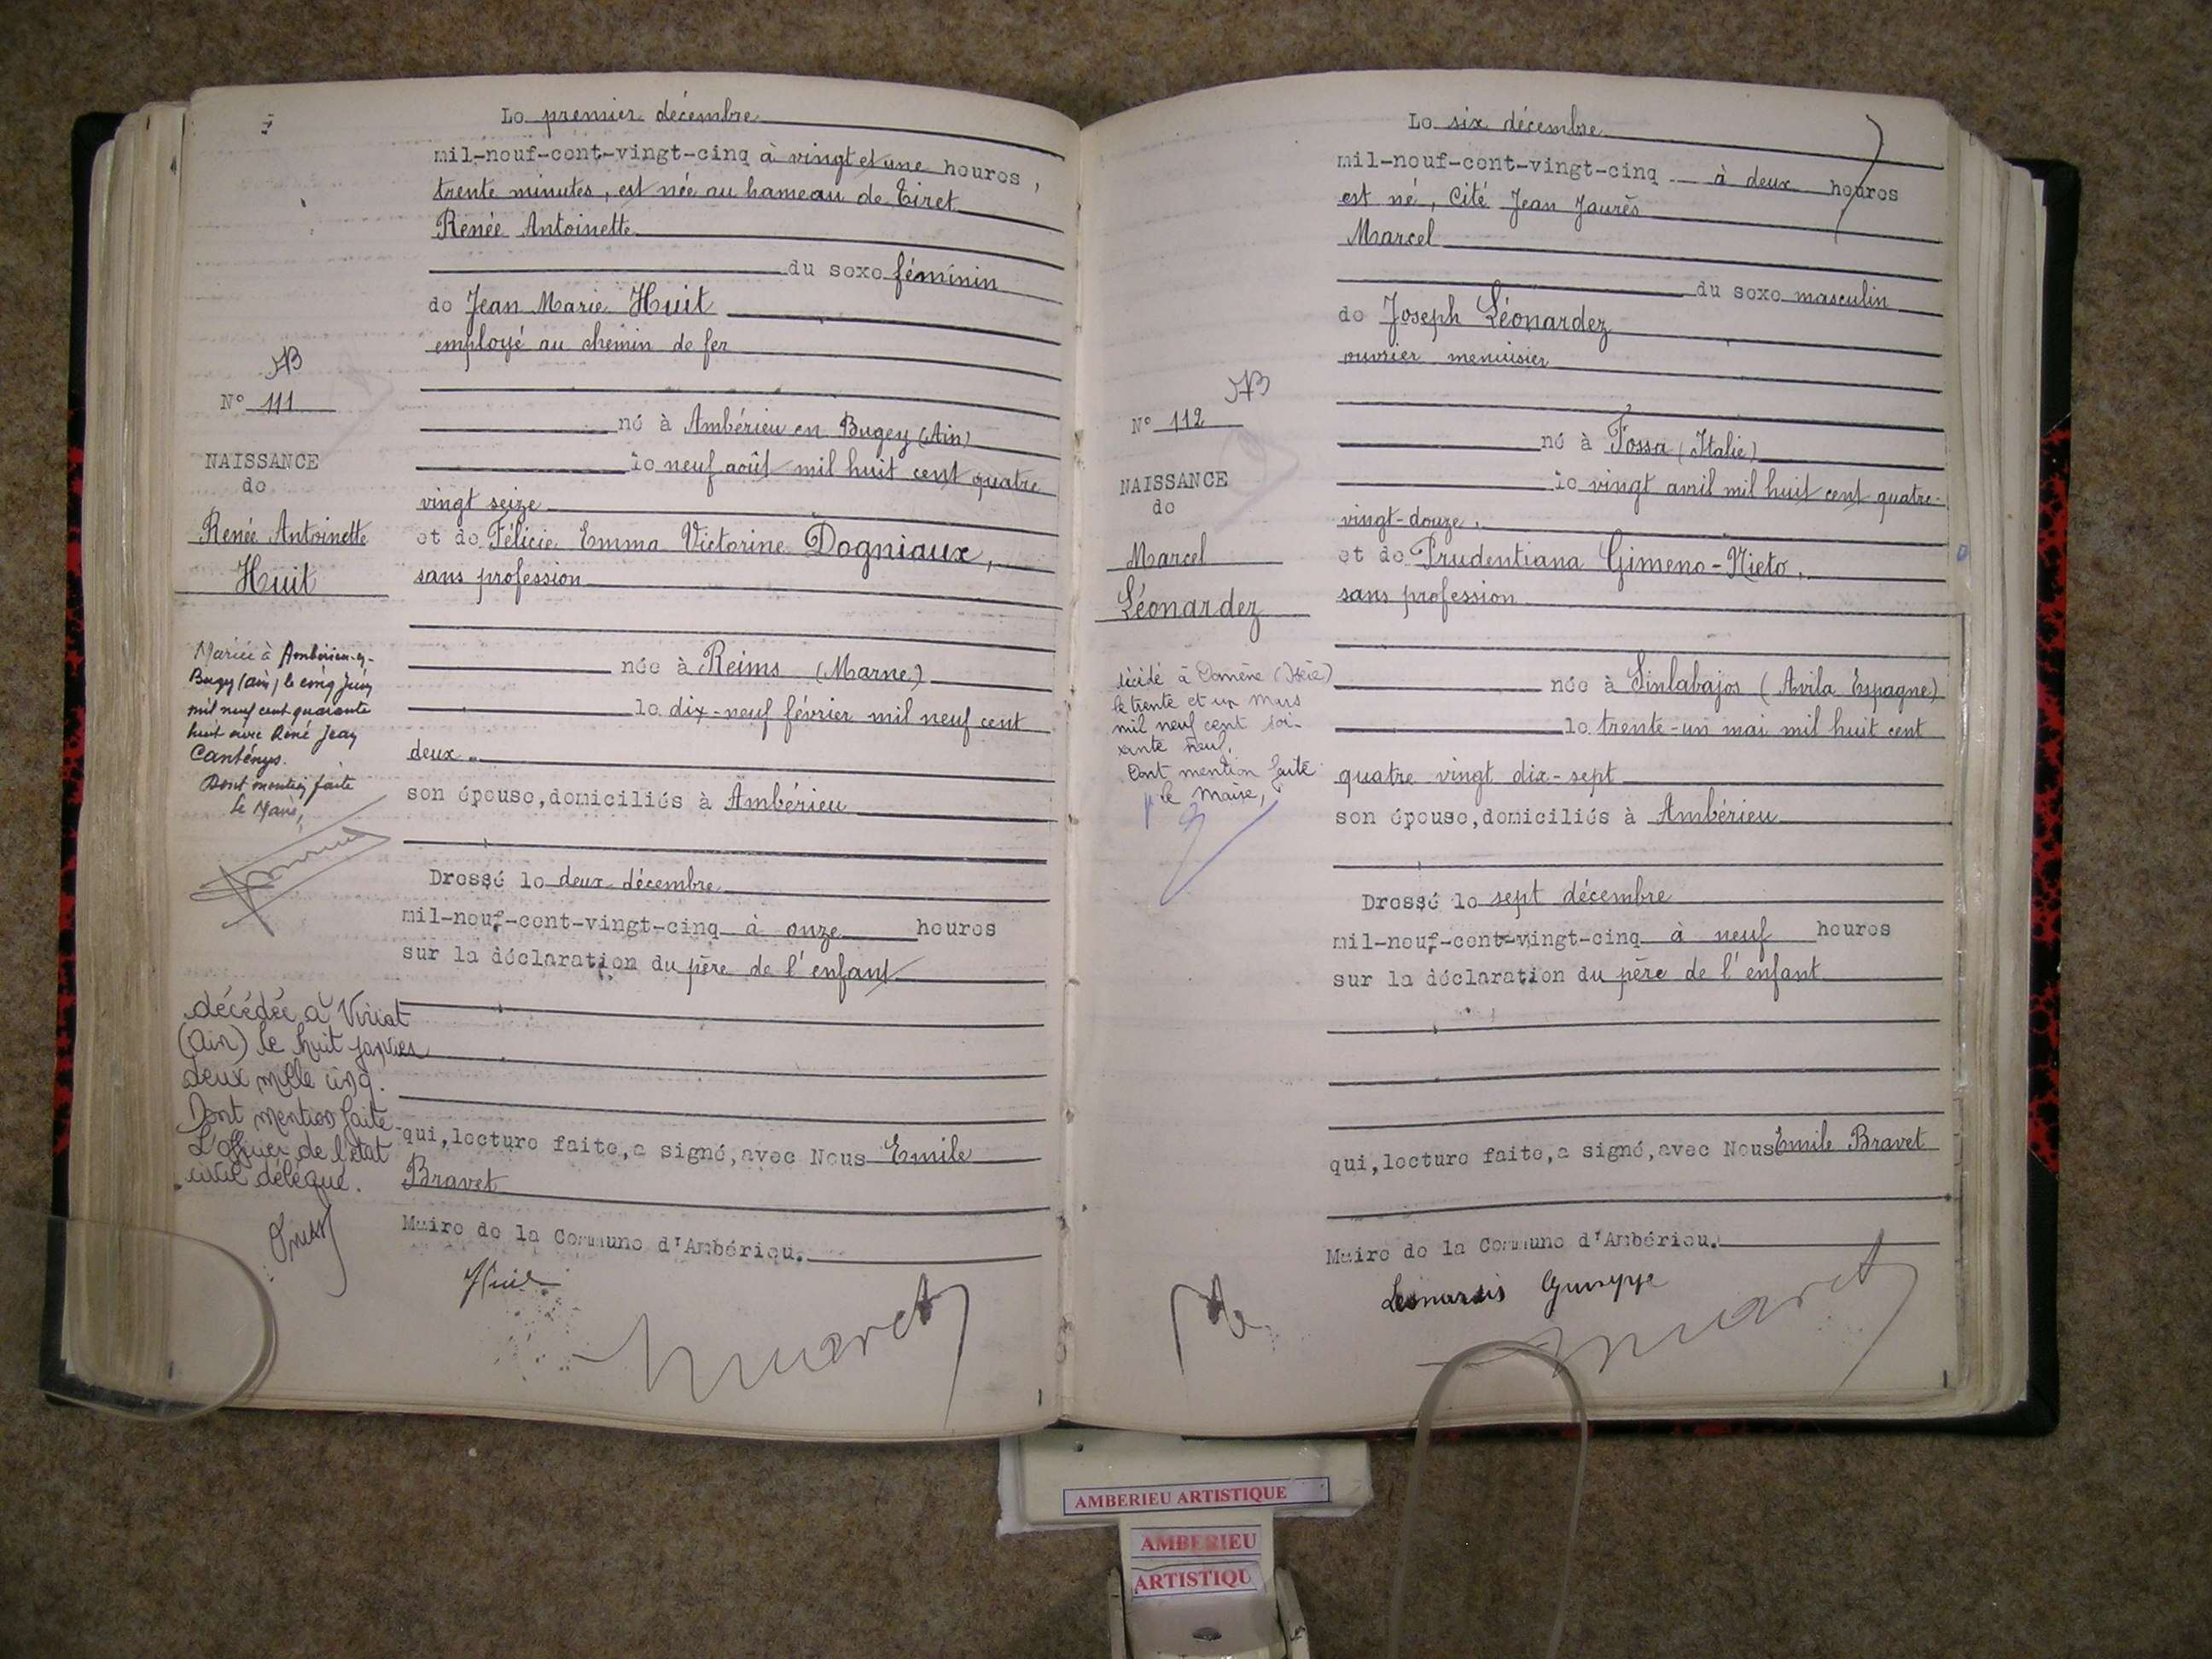 Le premier décembre
mil-neuf-cent-vingt-cinq à vingt et une heures,
trente minutes, est née au hameau de Tiret
Renée Antoinette
du sexe féminin
de Jean Marie Huit
employé au chemin de fer
né à Ambérieu en Bugey (Ain)
le neuf août mil huit cent quatre
vingt seize
et de Félicie Emma Victorine Dogniaux,
sans profession
née à Reims (Marne)
le dix-neuf février mil neuf cent
deux
son épouse, domiciliés à Ambérieu
Dressé le deux décembre
mil-neuf-cent-vingt-cinq à onze heures
sur la déclaration du père de l'enfant
qui, lecture faite, a signé, avec Nous Emile
Bravet
Maire de la Commune d'Ambérieu.
Huit
N° 111
NAISSANCE
de
Renée Antoinette
Huit
Mariée à Ambérieu-en-
Bugey (ain) le cinq Juin
mil neuf cent quarante
huit avec René Jean
Dont mention faite
Le Maire,
décédée à Viriat
(Ain) le huit janvier
deux mille cinq.
Dont mention faite
L'officier de l'état
civil délégué.
Le six décembre
mil-neuf-cent-vingt-cinq à deux heures
est né, Cité Jean Jaurès
Marcel
du sexe masculin
de Joseph Léonardez
ouvrier menuisier
né à Fossa (Italie)
le vingt avril mil huit cent quatre-
vingt-douze.
et de Prudentiana Gimeno-Nieto,
sans profession
née à Sinlabajos (Avila Espagne)
le trente-un mai mil huit cent
quatre vingt dix-sept
son épouse, domiciliés à Ambérieu
Dressé le sept décembre
mil-neuf-cent-vingt-cinq à neuf heures
sur la déclaration du père de l'enfant
qui, lecture faite, a signé, avec Nous Emile Bravet
Maire de la Commune d'Ambérieu.
N° 112
NAISSANCE
de
Marcel
Léonardez
à Domène (Isère)
le trente et un Mars
mil neuf cent soi-
xante neuf.
Dont mention faite
p le Maire,
AMBERIEU ARTISTIQUE
AMBERIEU
ARTISTIQU